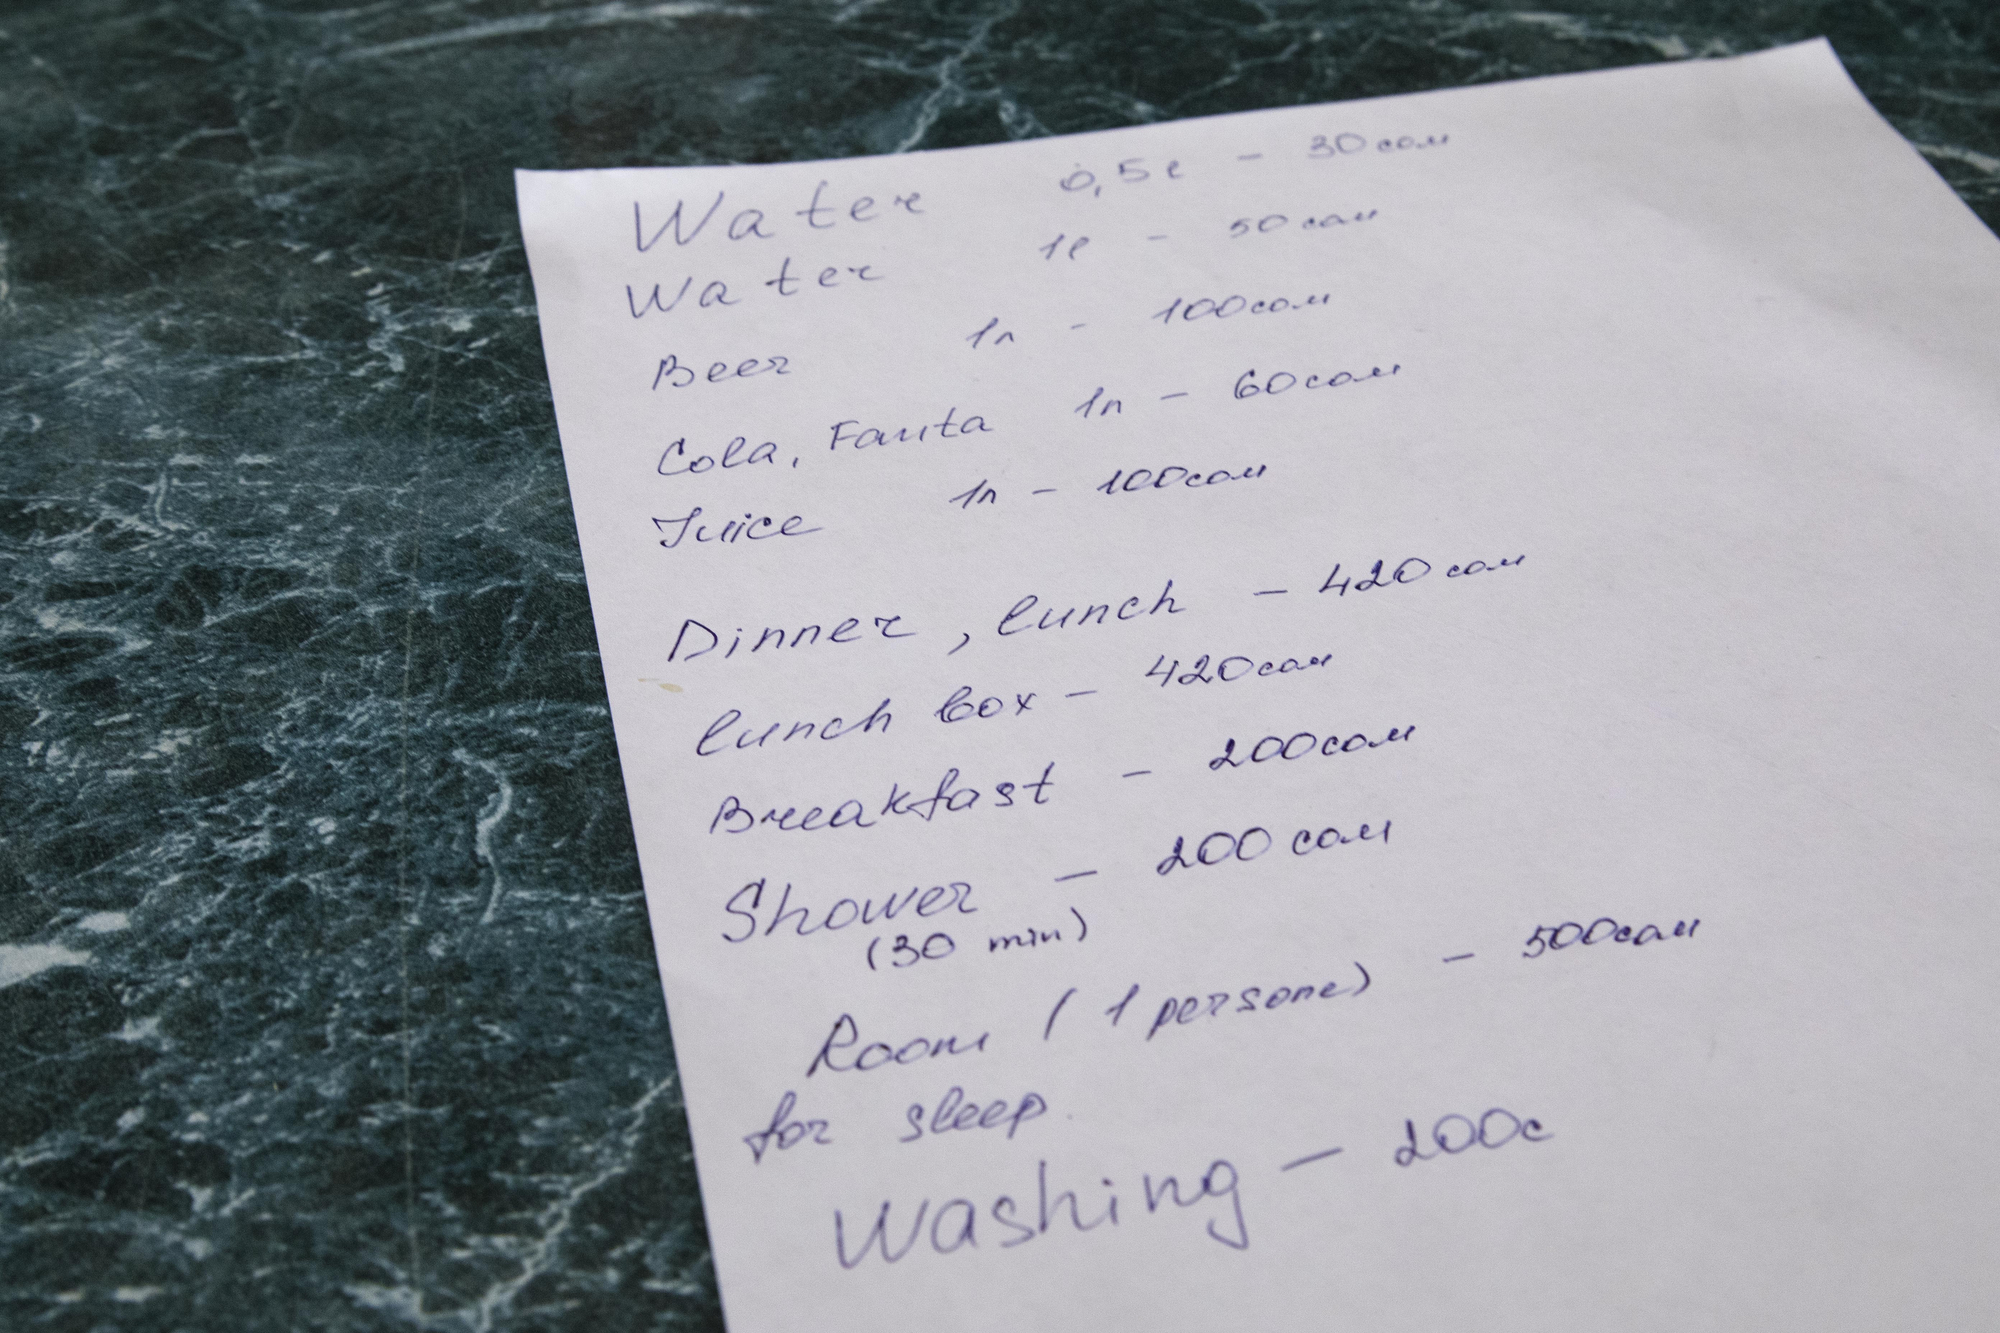 Water 0,5l - 30 сом
Water 1l - 50 сом
Beer 1л - 100 сом
Cola, Fanta 1л - 60 сом
Juice 1л - 100 сом
Dinner, lunch - 420 сом
lunch box - 420 сом
Breakfast - 200 сом
Shower - 200 сом
(30 min)
Room (1 persone) - 500 сом
for sleep
Washing - 200с